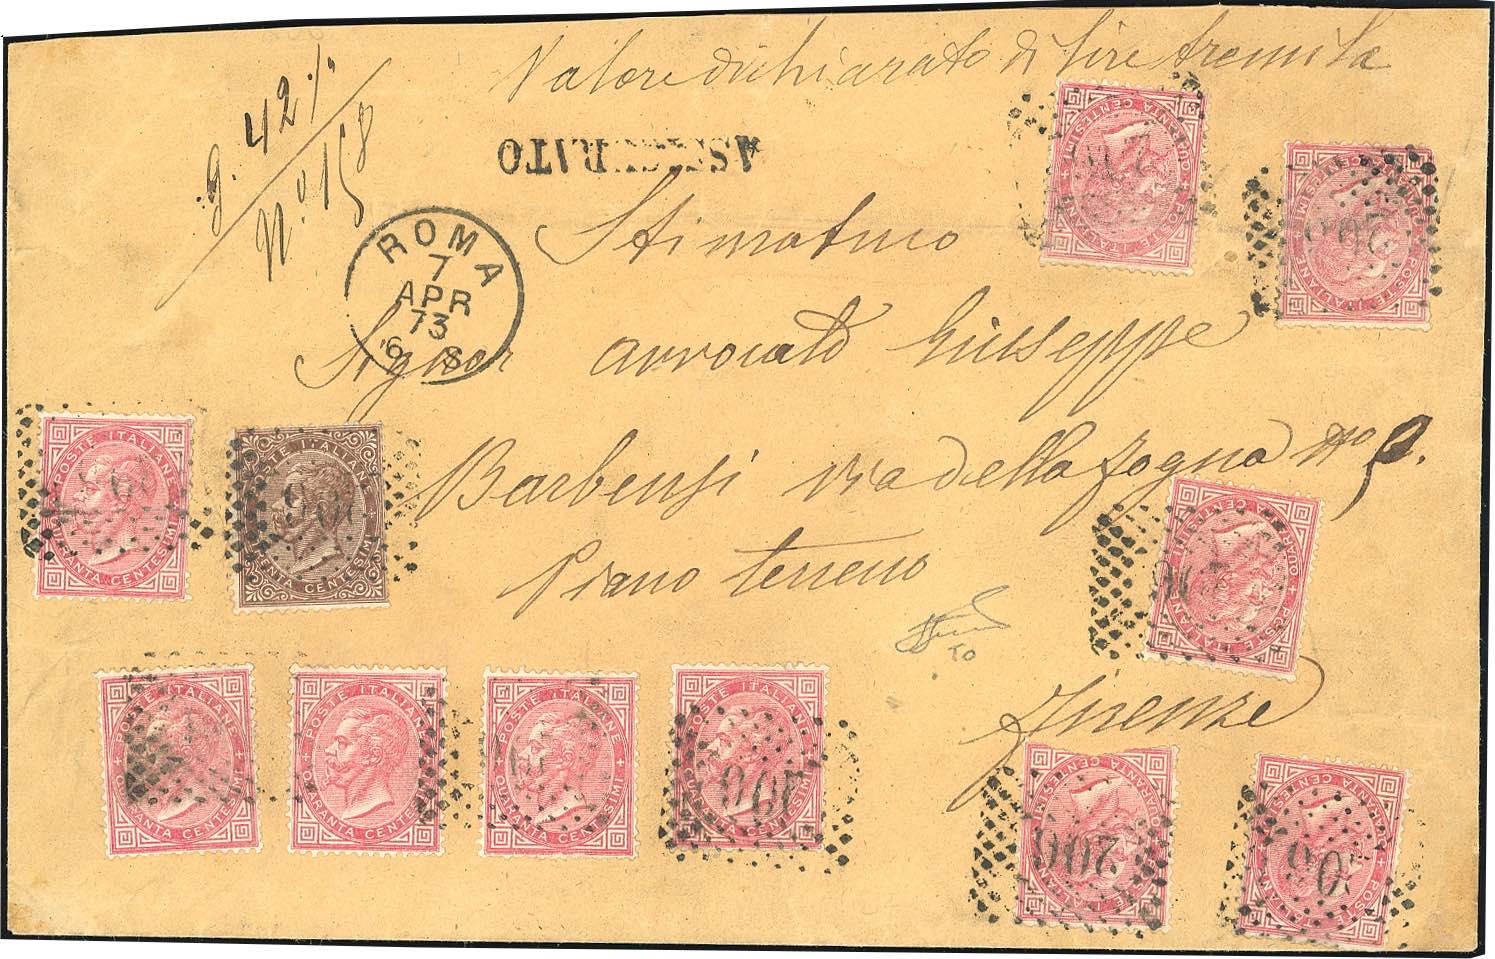 Valore dichiarato di lire tremila
g. 42 1/2
Nº 158
ASSICURATO
ROMA
7
APR
73
6 S
Signor avvocato Giuseppe
Barbensi via della fogna Nº 5.
Piano terreno
TO
Firenze
POSTE ITALIANE
QUARANTA CENTESIMI
207
POSTE ITALIANE
QUARANTA CENTESIMI
POSTE ITALIANE
QUARANTA CENTESIMI
POSTE ITALIANE
TRENTA CENTESIMI
POSTE ITALIANE
QUARANTA CENTESIMI
POSTE ITALIANE
QUARANTA CENTESIMI
POSTE ITALIANE
QUARANTA CENTESIMI
POSTE ITALIANE
QUARANTA CENTESIMI
POSTE ITALIANE
QUARANTA CENTESIMI
POSTE ITALIANE
QUARANTA CENTESIMI
POSTE ITALIANE
QUARANTA CENTESIMI